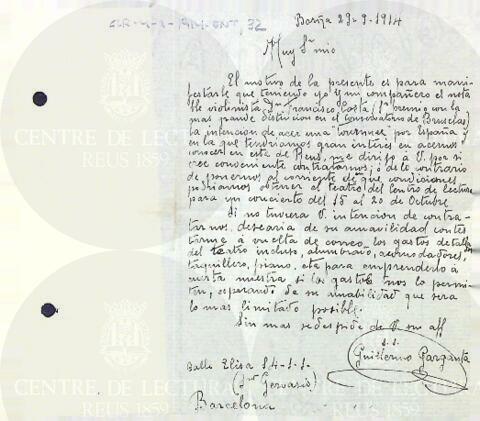 CLR-4-1-1914-ENT, 32
Barña 23-9-1914
Muy Sr mio
El motivo de la presente es para mani-
festarle que teniendo yo y mi compañero el nota
ble violinista Dn Francisco Costa (1er premio con la
mas grande distincion en el Conservatorio de Bruselas)
la intencion de acer una "tournee" por España y
en la que tendriamos gran interés en acernos
conocer en este de Reus, me dirijo á V. por si
cree conveniente contratarnos; ó de lo contrario
de ponernos al corriente de que condiciones
podriamos obtener el teatro del Centro de lectura
para un concierto del 15 al 20 de Octubre.
Si no tuviera V. intencion de contra-
tarnos, desearia de su amavilidad contes
tarme á vuelta de correo, los gastos detalla
dos
del teatro incluso, alumbrado, acomodadores,
taquillero, piano, eta para emprenderlo á
cuenta nuestra si los gastos nos lo permi-
ten, esperando de su amabilidad que sera
lo mas limitado posible.
Sin mas se despide de V. su aff
s.s.
Guillermo Garganta
Calle Elisa 14-1-1
(Sn Gervasio)
Barcelona
CENTRE DE LECTURA
REUS 1859
CENTRE DE LECTURA
REUS 1859
CENTRE DE LECTURA
REUS 1859